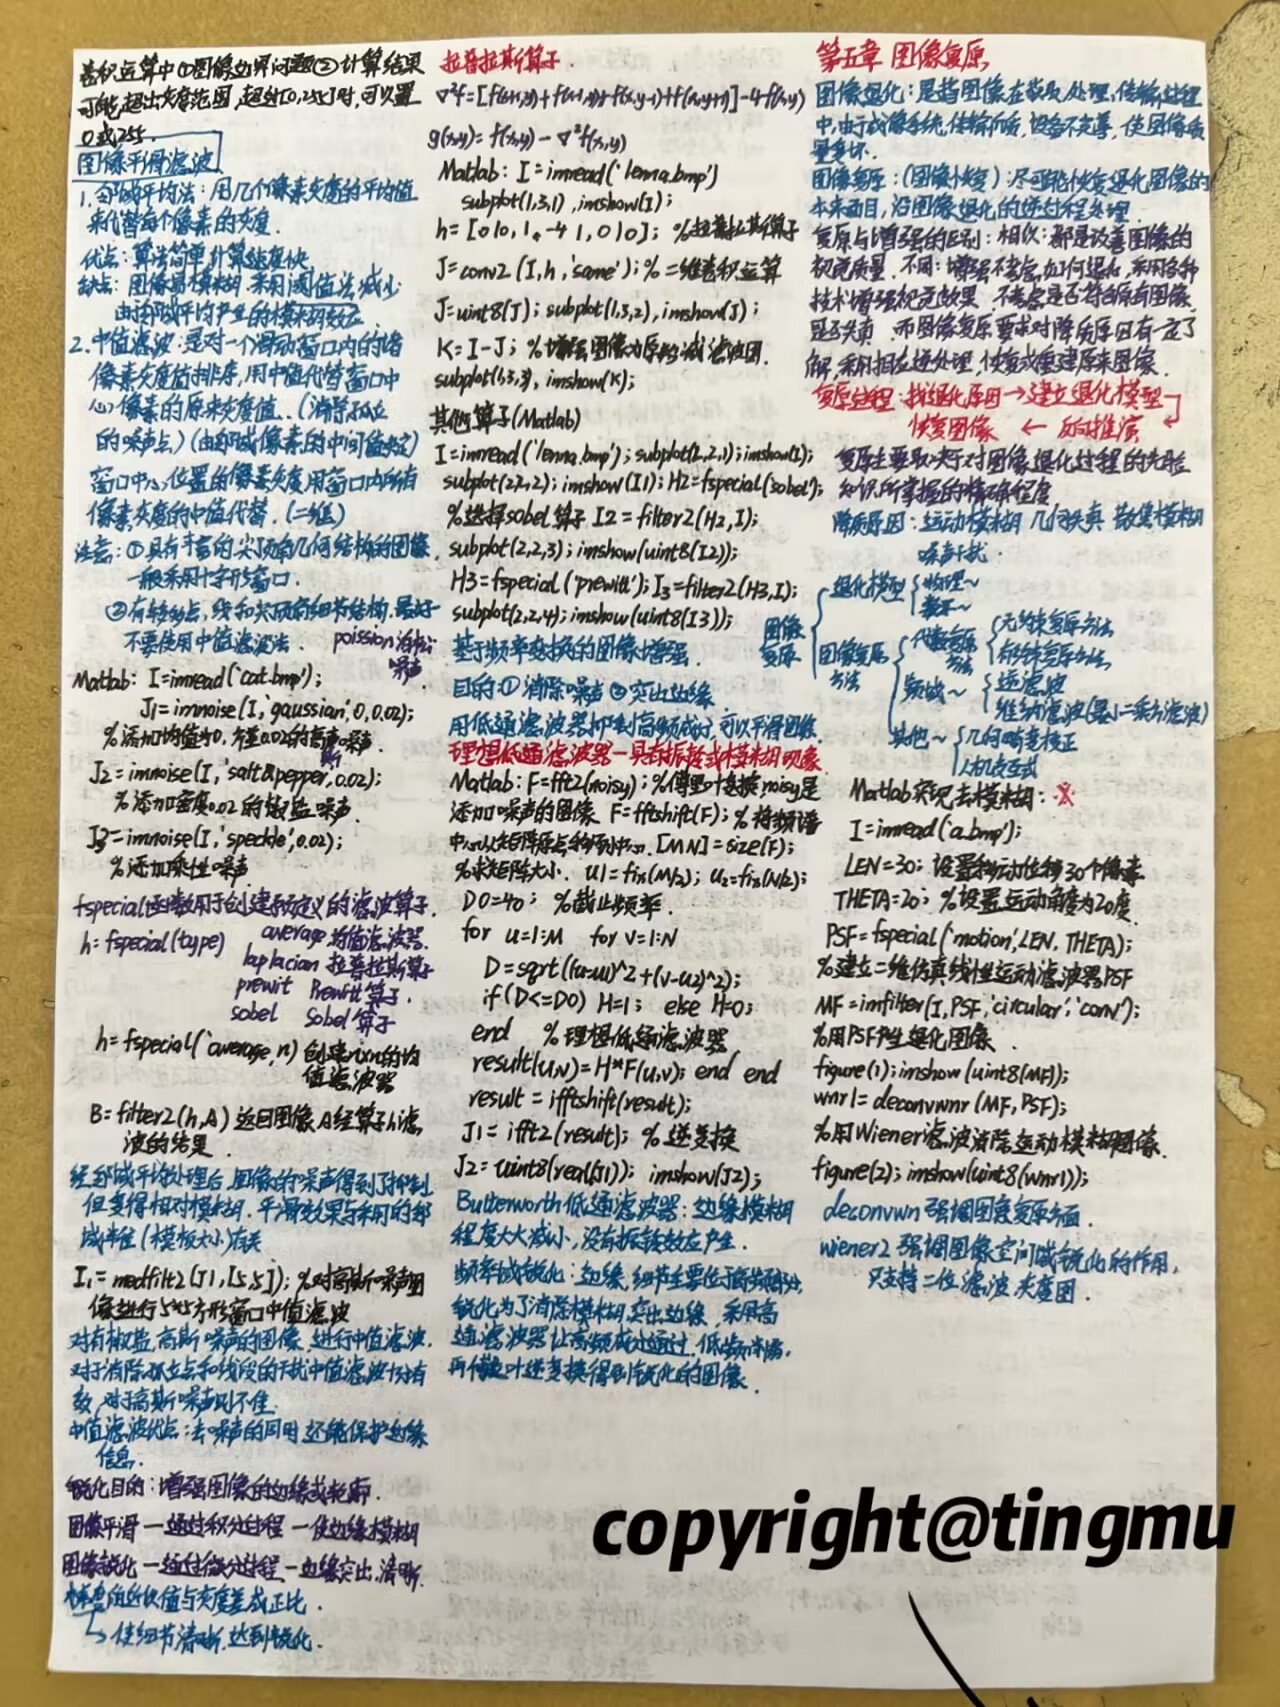 卷积运算中①图像边界问题②计算结果
可能超出灰度范围,超出[0,255]时,可以置
0或255.
图像平滑滤波
1.邻域平均法:用几个像素灰度的平均值
来代替每个像素的灰度.
优点:算法简单计算速度快
缺点:图像易模糊.采用阈值法减少
由邻域平均产生的模糊效应.
2.中值滤波:是对一个滑动窗口内的诸
像素灰度值排序,用中值代替窗口中
心像素的原来灰度值.(消除孤立
的噪声点)(由邻域像素的中间值决定)
窗口中心位置的像素灰度用窗口内所有
像素灰度的中值代替.(二维)
注意:①具有丰富的尖顶角几何结构的图像.
一般采用十字形窗口.
②有较多点,线和尖顶角细节结构,最好
不要使用中值滤波法. poission泊松
噪声
Matlab: I=imread('cat.bmp');
J1=imnoise(I,'gaussian',0,0.02);
%添加均值为0,方差0.02的高斯噪声.
J2=imnoise(I,'salt&pepper',0.02);
%添加密度0.02的椒盐噪声.
J3=imnoise(I,'speckle',0.02);
%添加乘性噪声
fspecial函数用于创建预定义的滤波算子.
h=fspecial(type) average 均值滤波器.
laplacian 拉普拉斯算子
prewit Prewitt算子.
sobel Sobel算子
h=fspecial('average,n) 创建n×n的均
值滤波器
B=filter2(h,A) 返回图像A经算子h滤
波的结果.
经邻域平均处理后,图像的噪声得到了抑制
但变得相对模糊.平滑效果与采用的邻
域半径(模板大小)有关
I1=medfilt2(J1,[5,5]); %对高斯噪声图
像进行5*5方形窗口中值滤波
对有椒盐,高斯噪声的图像,进行中值滤波.
对于消除孤立点和线段的干扰中值滤波十分有
效,对于高斯噪声则不佳.
中值滤波优点:去噪声的同时还能保护边缘
信息.
锐化目的:增强图像的边缘或轮廓.
图像平滑—通过积分过程—使边缘模糊
图像锐化—通过微分过程—边缘突出.清晰.
梯度的近似值与灰度差成正比.
↳使细节清晰.达到锐化.
拉普拉斯算子.
▽²f=[f(x+1,y)+f(x-1,y)+f(x,y-1)+f(x,y+1)]-4f(x,y)
g(x,y)=f(x,y)-▽²f(x,y)
Matlab: I=imread('lenna.bmp')
subplot(1,3,1),imshow(I);
h=[0 1 0, 1, -4 1, 0 1 0]; %拉普拉斯算子
J=conv2(I,h,'same');%二维卷积运算
J=uint8(J); subplot(1,3,2),imshow(J);
K=I-J; %增强图像为原始减滤波图.
subplot(1,3,3), imshow(K);
其他算子(Matlab)
I=imread('lenna.bmp');subplot(2,2,1);imshow(I);
subplot(2,2,2);imshow(I1);H2=fspecial(sobel');
%选择sobel算子 I2=filter2(H2,I);
subplot(2,2,3);imshow(uint8(I2));
H3=fspecial('prewitt');I3=filter2(H3,I);
subplot(2,2,4);imshow(uint8(I3));
基于频率变换的图像增强.
目的:①消除噪声②突出边缘
用低通滤波器抑制高频成分,可以平滑图像.
理想低通滤波器—具有振铃或模糊现象
Matlab: F=fft2(noisy);%傅里叶变换,noisy是
添加噪声的图像 F=fftshift(F);%将频谱
中心从矩阵原点移到中心.[M N]=size(F);
%求矩阵大小. u1=fix(M/2); u2=fix(N/2);
D0=40; %截止频率.
for u=1:M for v=1:N
D=sqrt((u-u1)^2+(v-u2)^2);
if(D<=D0) H=1; else H=0;
end %理想低通滤波器
result(u,v)=H*F(u,v); end end
result=ifftshift(result);
J1=ifft2(result); %逆变换
J2=uint8(real(J1)); imshow(J2);
Butterworth低通滤波器:边缘模糊
程度大大减小,没有振铃效应产生.
频率域锐化:边缘,细节主要位于高频部分,
锐化为了消除模糊,突出边缘.采用高
通滤波器让高频成分通过,低频削弱,
再傅里叶逆变换得到锐化的图像.
第五章 图像复原
图像退化:是指图像在获取处理,传输过程
中,由于成像系统,传输介质,设备不完善,使图像质
量变坏.
图像复原:(图像恢复):尽可能恢复退化图像的
本来面目,沿图像退化的逆过程处理.
复原与增强的区别:相似:都是改善图像的
视觉质量.不同:增强不考虑,如何退化,采用各种
技术增强视觉效果,不考虑是否符合原有图像,
是否失真.而图像复原要求对降质原因有一定了
解,采用相应逆处理,恢复或重建原来图像.
复原过程:找退化原因→建立退化模型→
恢复图像 ← 反向推演
复原主要取决于对图像退化过程的先验
知识所掌握的精确程度
降质原因:运动模糊 几何失真 散焦模糊
噪声干扰.
图像复原
退化模型 物理~
数学~
图像复原方法
代数复原方法 无约束复原方法
有约束复原方法
频域~ 逆滤波
维纳滤波(最小二乘方滤波)
其他~ 几何畸变校正
人机交互式
Matlab实现去模糊:
I=imread('a.bmp');
LEN=30; 设置移动位移30个像素
THETA=20; %设置运动角度为20度.
PSF=fspecial('motion',LEN, THETA);
%建立二维仿真线性运动滤波器PSF
MF=imfilter(I,PSF,'circular','conv');
%用PSF产生退化图像.
figure(1);imshow(uint8(MF));
wnr1=deconvwnr(MF,PSF);
%用Wiener滤波消除运动模糊图像.
figure(2);imshow(uint8(wnr1));
deconvwn强调图像复原方面.
wiener2强调图像空间域锐化的作用,
只支持二位滤波,灰度图.
copyright@tingmu